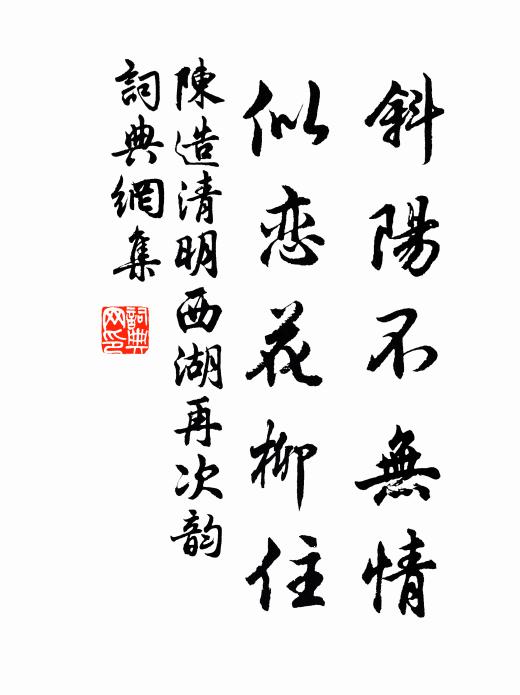 斜陽不無情
似恋花柳住
陳造清明西湖再次韵
詞典網集
詞典
网印